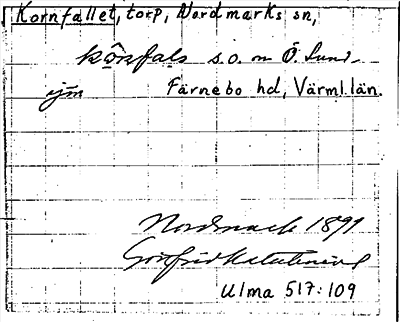 Kornfallet, torp, Nordmarks sn,
s.o. om Ö. Lund
Färnebo hd, Värml. län.
Nordmark 1891
Gottfrid Kallstenius
Ulma 517:109